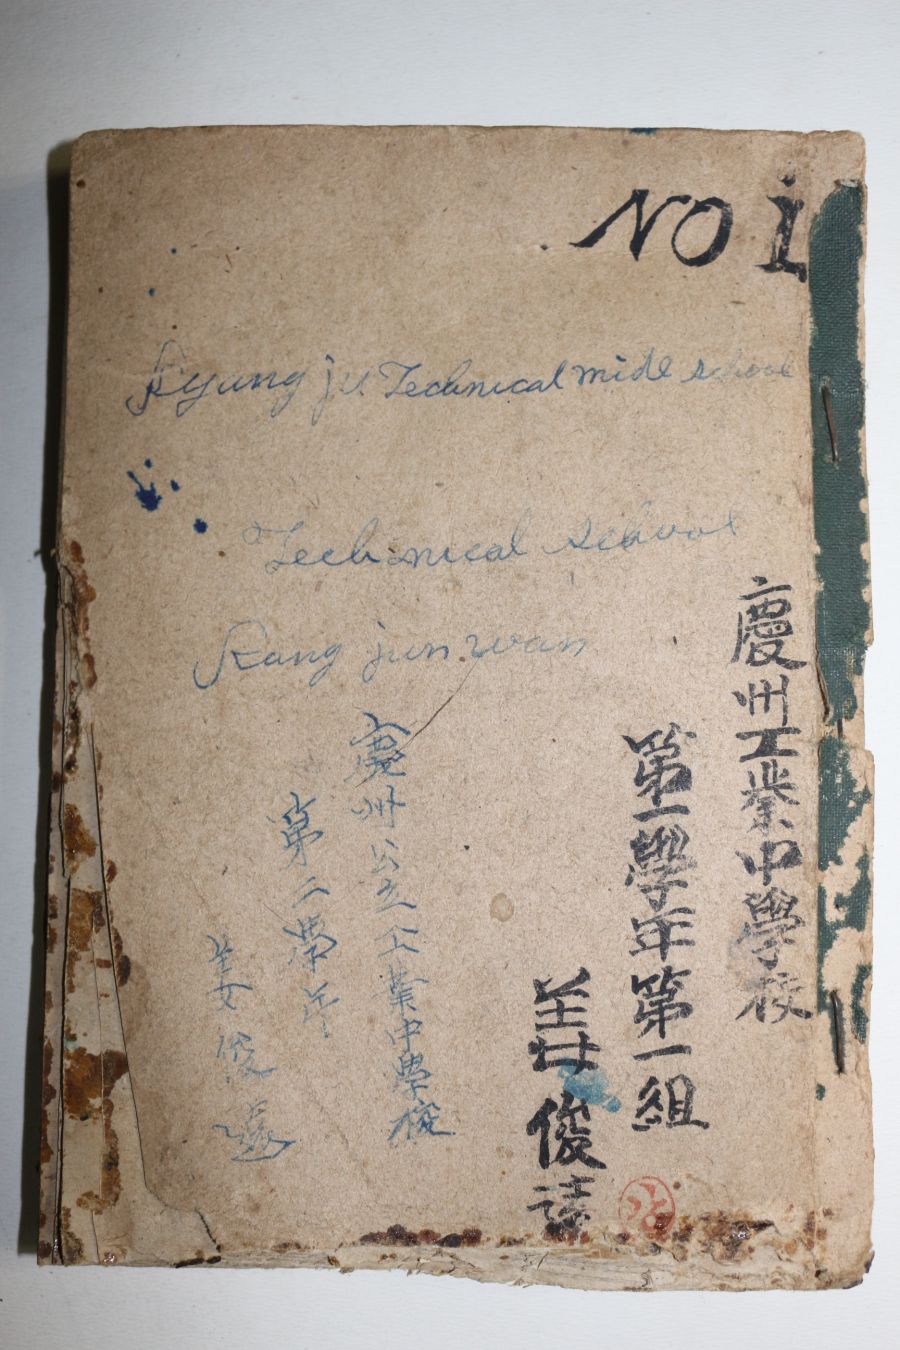 NO 1
Kyung ju Technical midl school
Technical school
Kang jun wan
慶州工業中學校
第一學年第一組
姜俊
慶州公立工業中學校
第二學年
姜俊遠